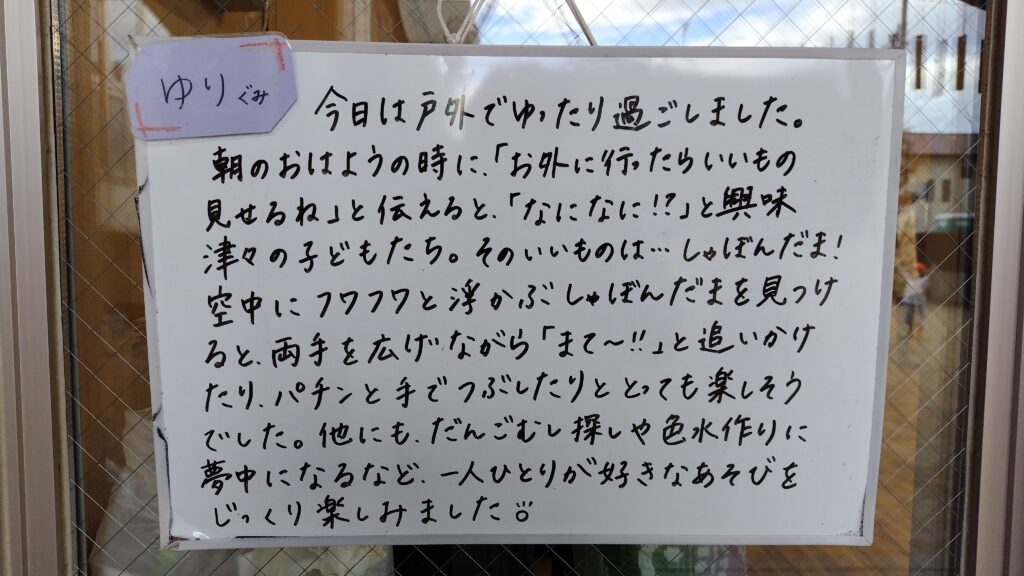 ゆりぐみ
今日は戸外でゆったり過ごしました。
朝のおはようの時に、「お外に行ったらいいもの
見せるね」と伝えると、「なになに!?」と興味
津々の子どもたち。そのいいものは…しゃぼんだま!
空中にフワフワと浮かぶしゃぼんだまを見つけ
ると、両手を広げながら「まて〜!!」と追いかけ
たり、パチンと手でつぶしたりととっても楽しそう
でした。他にも、だんごむし探しや色水作りに
夢中になるなど、一人ひとりが好きなあそびを
じっくり楽しみました